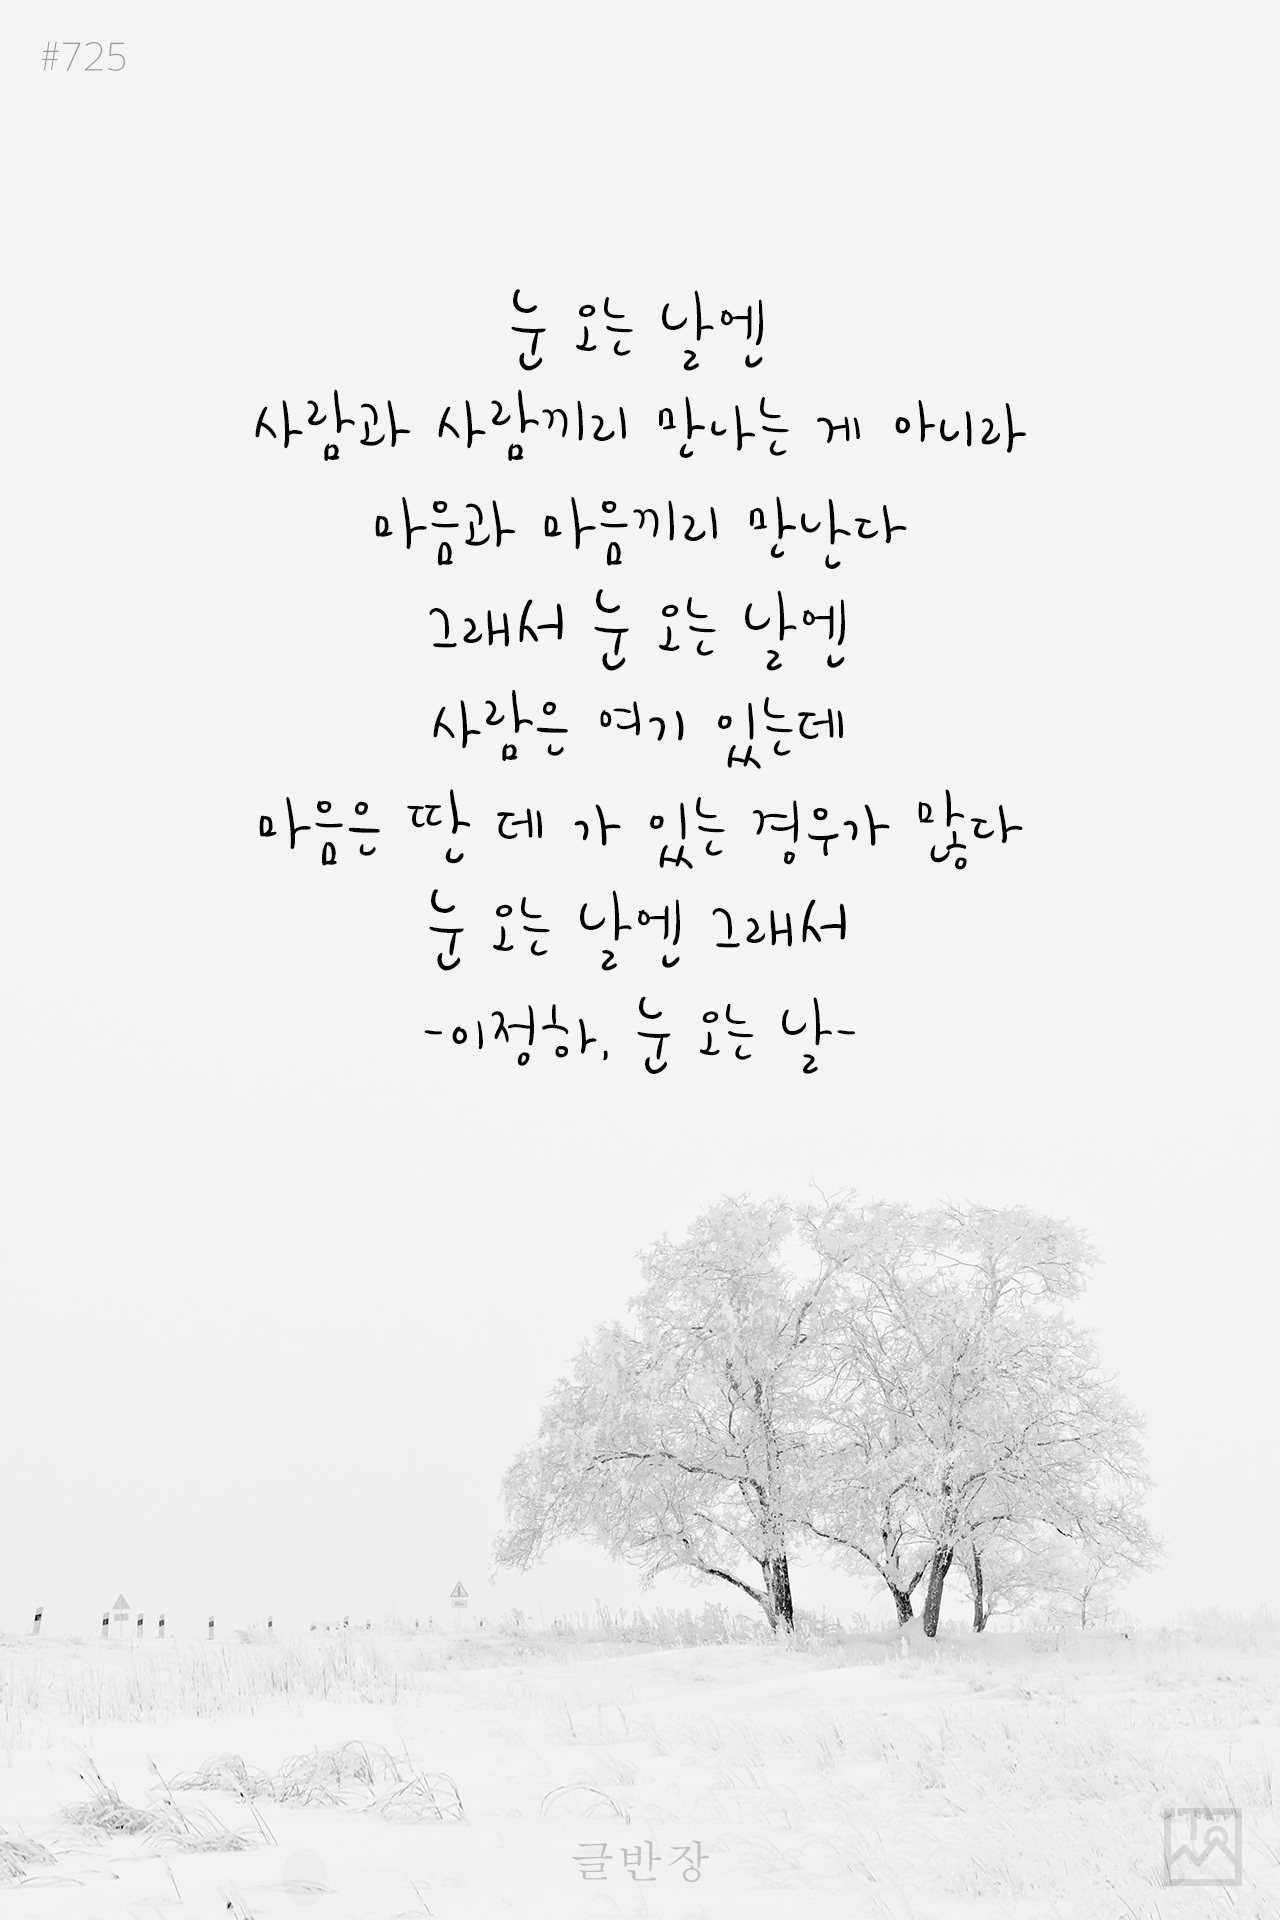 #725
눈 오는 날엔
사람과 사람끼리 만나는 게 아니라
마음과 마음끼리 만난다
그래서 눈 오는 날엔
사람은 여기 있는데
마음은 딴 데 가 있는 경우가 많다
눈 오는 날엔 그래서
-이정하, 눈 오는 날-
글반장